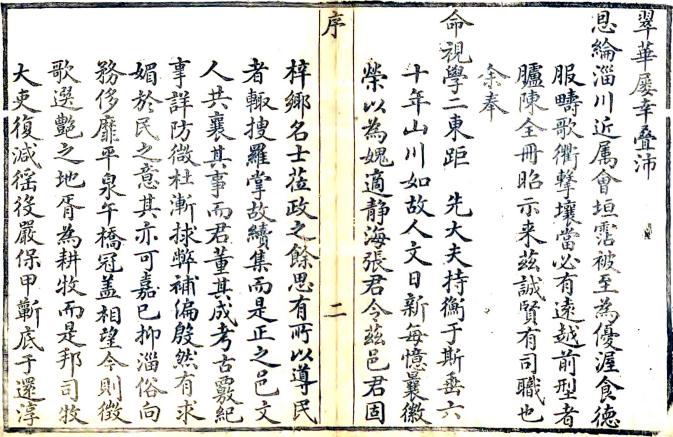 翠華屢幸疊沛
恩綸淄川近属會垣霑被至為優渥食德
服疇歌衢擊壤當必有遠越前型者
臚陳全冊昭示来茲誠賢有司職也
余奉
命視學二東距　先大夫持衡于斯垂六
十年山川如故人文日新每憶曩徽
榮以為媿適静海張君令茲邑君固
序
二
梓鄉名士莅政之餘思有所以導民
者輙搜羅掌故續集而是正之邑文
人共襄其事而君董其成考古覈紀
事詳防微杜漸捄弊補偏殷然有求
媚於民之意其亦可嘉已抑淄俗向
務侈靡平泉午橋冠盖相望今則徵
歌選艷之地胥為耕牧而是邦司牧
大吏復減徭役嚴保甲蘄底于還淳